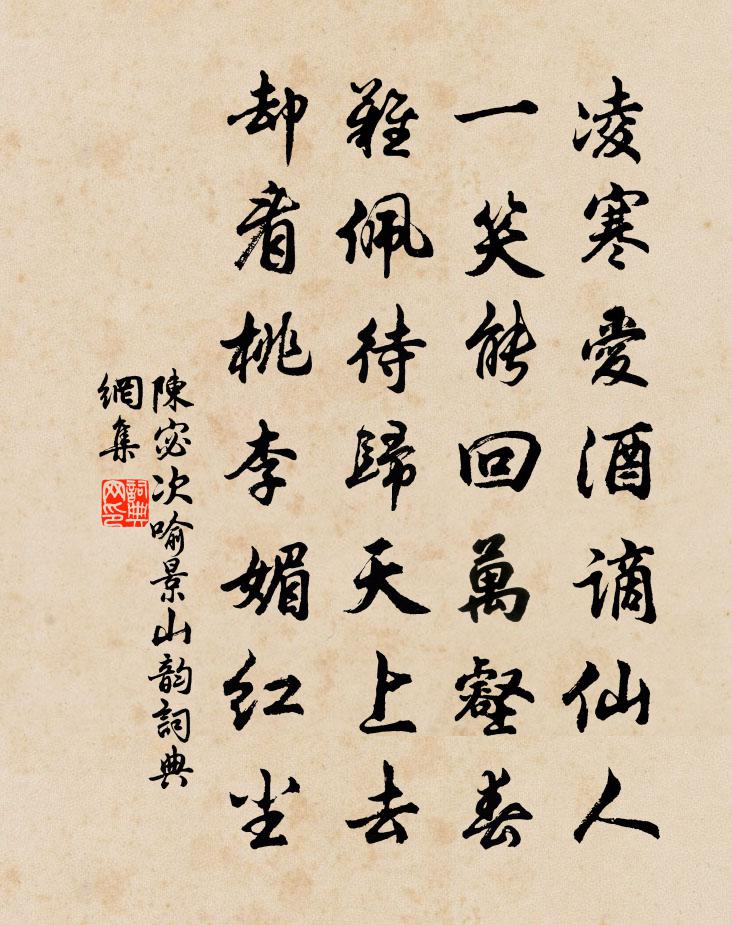 凌寒愛酒謫仙人
一笑能回萬壑春
雜佩待歸天上去
却看桃李媚紅尘
陳宓次喻景山韵詞典
網集
詞典网印